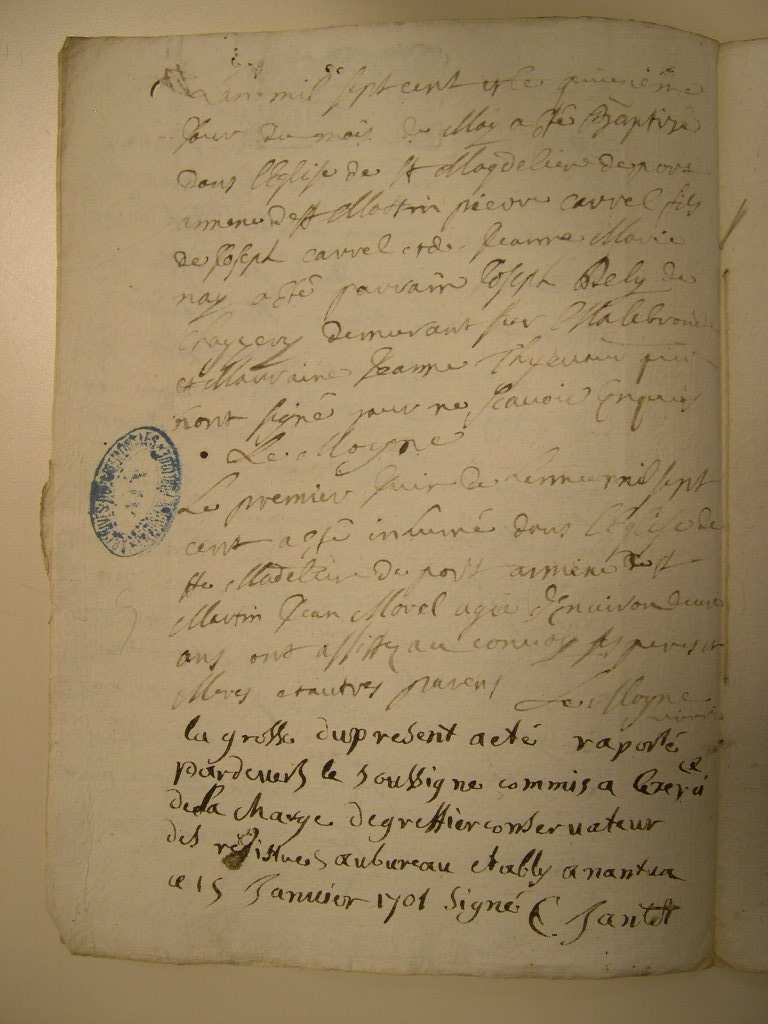 Lan mil sept cent et le quinzième
jour du mois de May a esté Baptisé
dans l'Eglise de st Magdeleine de port
arriere de st Martin pierre carrel fils
de Joseph carrel et de Jeanne Marie
nay a esté parrain Joseph Bely de
demeurant sur Malebronde
et Marraine Jeanne qui
n'ont signé pour ne scavoir Enquis
Le Moyne
Le premier Juin de lannee mil sept
cent a esté inhumé dans l'Eglise de
ste Madeleine de port arriere de st
Martin Jean Morel agé d'Environ deux
ans ont assisté au convoy ses peres et
Meres et autres parens Le Moyne
vicaire
la grosse du present acté raporté
pardevers le soussigne commis a lexerci
ce
de la charge de greffier conservateur
des registres au bureau etably a nantua
ce 15 Janvier 1701 signé C. Jantet